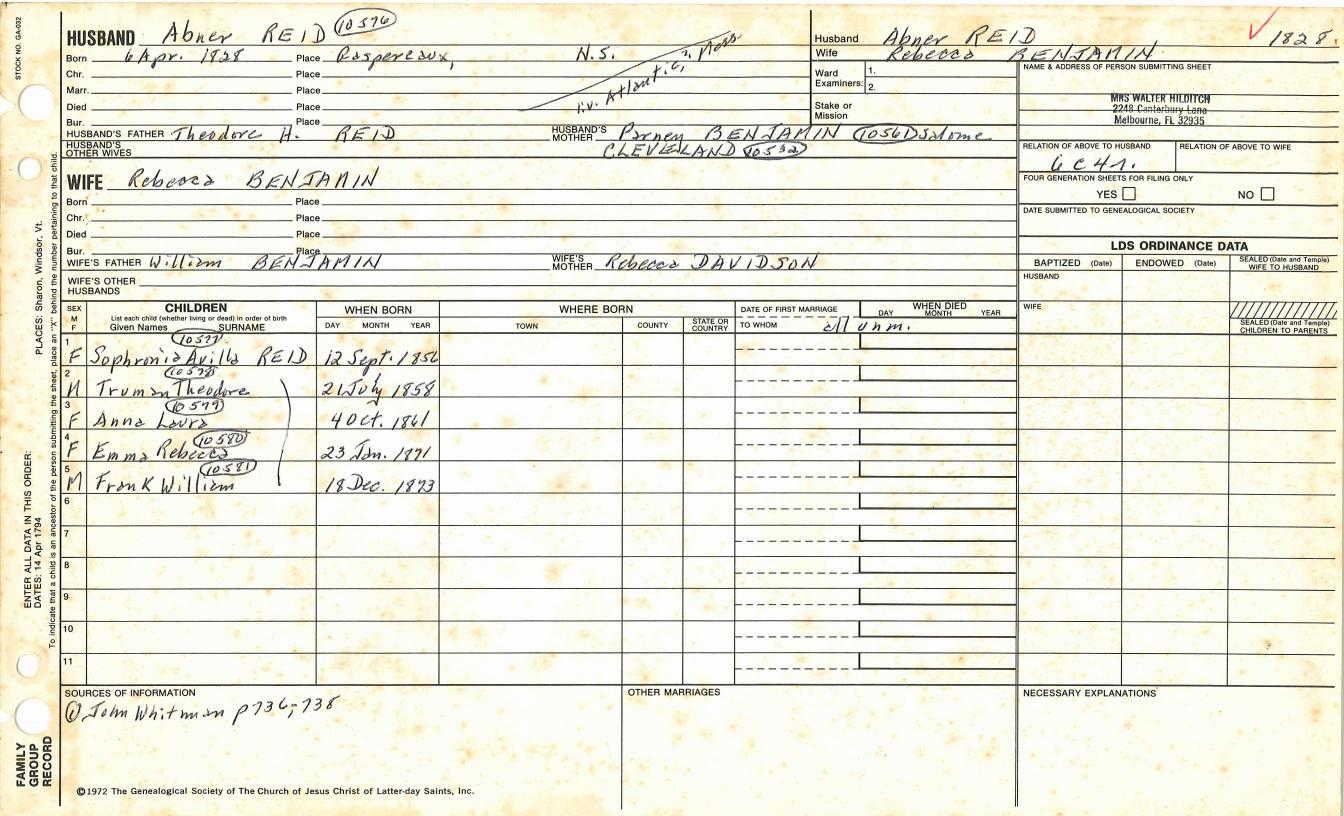 STOCK NO. GA-032
HUSBAND Abner REID 10576
Born 6 Apr. 1828 Place Gaspereaux, N.S.
Chr. Place
Marr. Place liv. Atlantic, Mass
Died Place
Bur. Place
HUSBAND'S FATHER Theodore H. REID HUSBAND'S MOTHER BENJAMIN Salome
HUSBAND'S OTHER WIVES CLEVELAND 10532
Husband Abner REID 1828.
Wife Rebecca BENJAMIN
Ward Examiners: 1.
2.
Stake or Mission
NAME & ADDRESS OF PERSON SUBMITTING SHEET
MRS WALTER HILDITCH
2248 Canterbury Lane
Melbourne, FL 32935
RELATION OF ABOVE TO HUSBAND RELATION OF ABOVE TO WIFE
6c4r.
FOUR GENERATION SHEETS FOR FILING ONLY
YES NO
DATE SUBMITTED TO GENEALOGICAL SOCIETY
WIFE Rebecca BENJAMIN
Born Place
Chr. Place
Died Place
Bur. Place
WIFE'S FATHER William BENJAMIN WIFE'S MOTHER Rebecca DAVIDSON
WIFE'S OTHER HUSBANDS
LDS ORDINANCE DATA
BAPTIZED (Date) ENDOWED (Date) SEALED (Date and Temple) WIFE TO HUSBAND
HUSBAND
WIFE
SEALED (Date and Temple) CHILDREN TO PARENTS
SEX M F
CHILDREN
List each child (whether living or dead) in order of birth
Given Names SURNAME
WHEN BORN
DAY MONTH YEAR
WHERE BORN
TOWN COUNTY STATE OR COUNTRY
DATE OF FIRST MARRIAGE
TO WHOM
WHEN DIED
DAY MONTH YEAR
all unm.
10577
1 F Sophronia Avilla REID 12 Sept. 1856
10578
2 M Truman Theodore 21 July 1858
10579
3 F Anna Laura 4 Oct. 1861
10580
4 F Emma Rebecca 23 Jan. 1871
10581
5 M Frank William 18 Dec. 1873
6
7
8
9
10
11
SOURCES OF INFORMATION
① John Whitman p736, 738
OTHER MARRIAGES
NECESSARY EXPLANATIONS
©1972 The Genealogical Society of The Church of Jesus Christ of Latter-day Saints, Inc.
FAMILY GROUP RECORD
ENTER ALL DATA IN THIS ORDER:
DATES: 14 Apr 1794 PLACES: Sharon, Windsor, Vt.
To indicate that a child is an ancestor of the person submitting the sheet, place an "X" behind the number pertaining to that child.